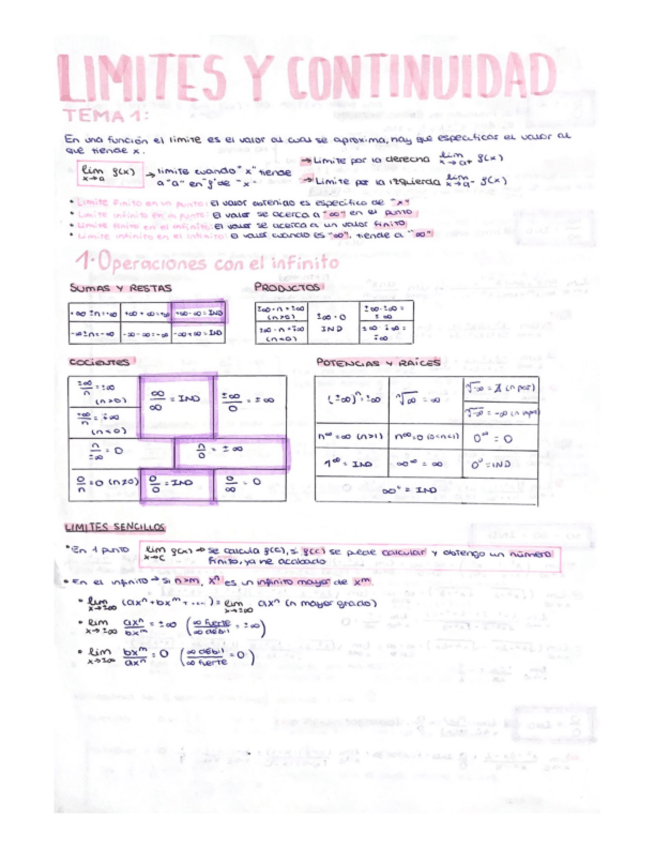 LIMITES Y CONTINUIDAD
TEMA 1:
En una función el límite es el valor al cual se aproxima, hay que especificar el valor al
que tiende x.
lim x→a g(x) → limite cuando "x" tiende
a "a" en "g" de "x"
→ Limite por la derecha lim x→a⁺ g(x)
→ Limite por la izquierda lim x→a⁻ g(x)
• Limite finito en un punto: El valor obtenido es específico de "x"
• Limite infinito en un punto: El valor se acerca a "∞" en el punto
• Limite finito en el infinito: El valor se acerca a un valor finito
• Limite infinito en el infinito: El valor cuando es "∞", tiende a "∞"
1·Operaciones con el infinito
SUMAS Y RESTAS
+∞ ± n = +∞ | +∞ + ∞ = +∞ | +∞ - ∞ = IND
-∞ ± n = -∞ | -∞ - ∞ = -∞ | -∞ + ∞ = IND
PRODUCTOS
±∞ · n = ±∞ (n>0) | ±∞ · 0 IND | ±∞ · ±∞ = ±∞
±∞ · n = ∓∞ (n<0) | ±∞ · ∓∞ = ∓∞
COCIENTES
±∞/n = ±∞ (n>0) | ∞/∞ = IND | ±∞/0 = ±∞
±∞/n = ∓∞ (n<0)
n/±∞ = 0 | n/0 = ±∞
0/n = 0 (n≠0) | 0/0 = IND | 0/∞ = 0
POTENCIAS Y RAÍCES
(±∞)ⁿ = ±∞ | ⁿ√∞ = ∞ | ⁿ√-∞ = ∄ (n par)
ⁿ√-∞ = -∞ (n impar)
n^∞ = ∞ (n>1) | n^∞ = 0 (0<n<1) | 0^∞ = 0
1^∞ = IND | ∞^∞ = ∞ | 0⁰ = IND
∞⁰ = IND
LIMITES SENCILLOS
• En 1 punto lim x→c g(x) → se calcula g(c), si g(c) se puede calcular y obtengo un número
finito, ya he acabado
• En el infinito → Si n>m, xⁿ es un infinito mayor de xᵐ
• lim x→±∞ (axⁿ + bxᵐ + ....) = lim x→±∞ axⁿ (n mayor grado)
• lim x→±∞ axⁿ/bxᵐ = ±∞ (∞ fuerte/∞ débil = ±∞)
• lim x→±∞ bxᵐ/axⁿ = 0 (∞ débil/∞ fuerte = 0)